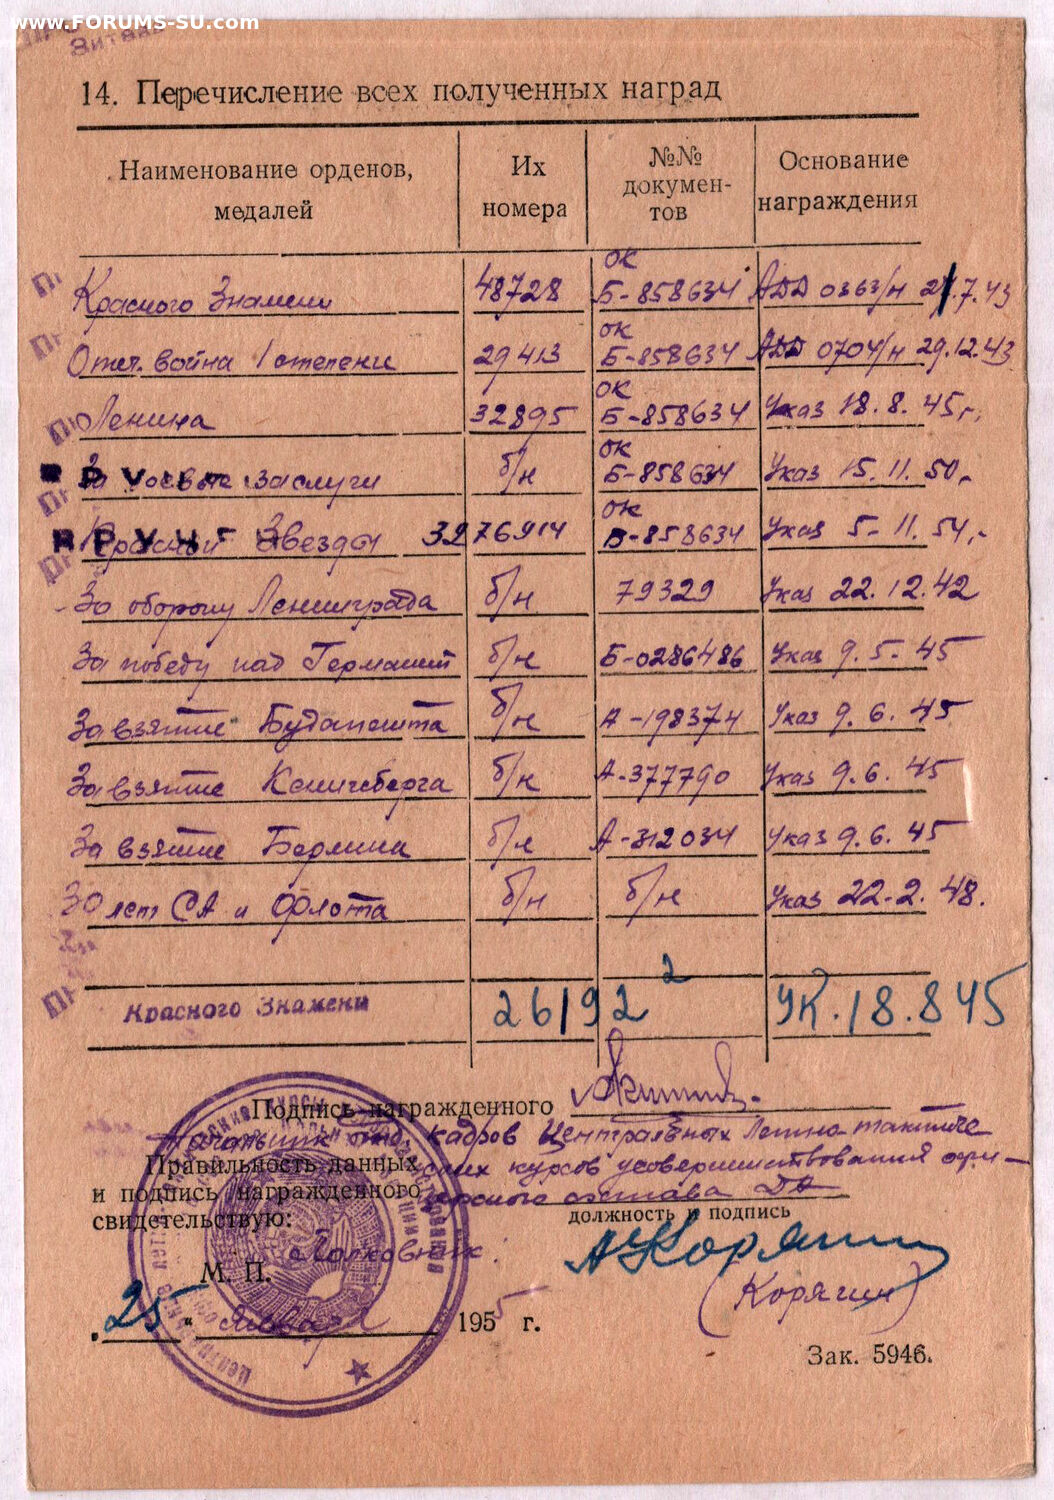 www.FORUMS-SU.com
14. Перечисление всех полученных наград
Наименование орденов, медалей
Их номера
№№ докумен-тов
Основание награждения
Красного Знамени 48728 ОК Б-858634 АДД 0363/н 27.7.43
Отеч. война 1 степени 29413 ОК Б-858634 АДД 0704/н 29.12.43
Ленина 32895 ОК Б-858634 Указ 18.8.45г.
За боевые заслуги б/н ОК Б-858634 Указ 15.11.50г.
Красной Звезды 3276914 ОК Б-858634 Указ 5.11.54г.
За оборону Ленинграда б/н 79329 Указ 22.12.42
За победу над Германией б/н Б-0286486 Указ 9.5.45
За взятие Будапешта б/н А-198374 Указ 9.6.45
За взятие Кенигсберга б/н А-377790 Указ 9.6.45
За взятие Берлина б/н А-312034 Указ 9.6.45
30 лет СА и Флота б/н б/н Указ 22.2.48.
Красного Знамени 26192 2 УК.18.8 45
Подпись награжденного
Начальник отд. кадров Центральных Летно-тактиче
Правильность данных
ских курсов усовершенствования офи-
и подпись награжденного
церского состава ДА
свидетельствую:
должность и подпись
Полковник
А Корягин
М. П.
(Корягин)
„25" января 1955 г.
Зак. 5946.